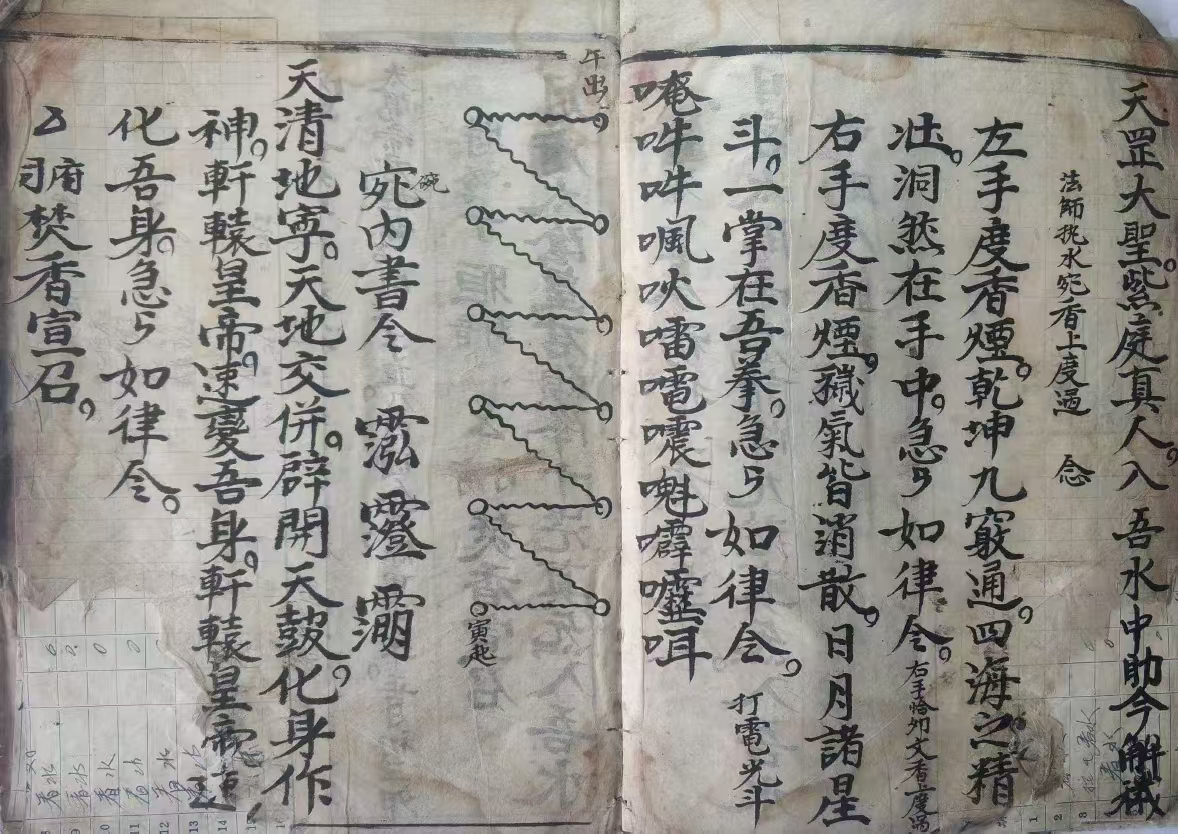 天罡大聖。紫庭真人。入吾水中助今解穢
法師挽水宛香上度過　念
左手度香煙。乾坤九竅通。四海之精
壯。洞然在手中。急々如律令。右手恰如文香上度過
右手度香煙。穢氣皆消散。日月諸星
斗。一掌在吾拳。急々如律令。打電光斗
唵吽吽
午出
寅起
宛碗內書令
天清地寧。天地交併。辟開天鼓。化身作
神。軒轅皇帝。速變吾身。軒轅皇帝速
化吾身。急々如律令。
焚香宣召。